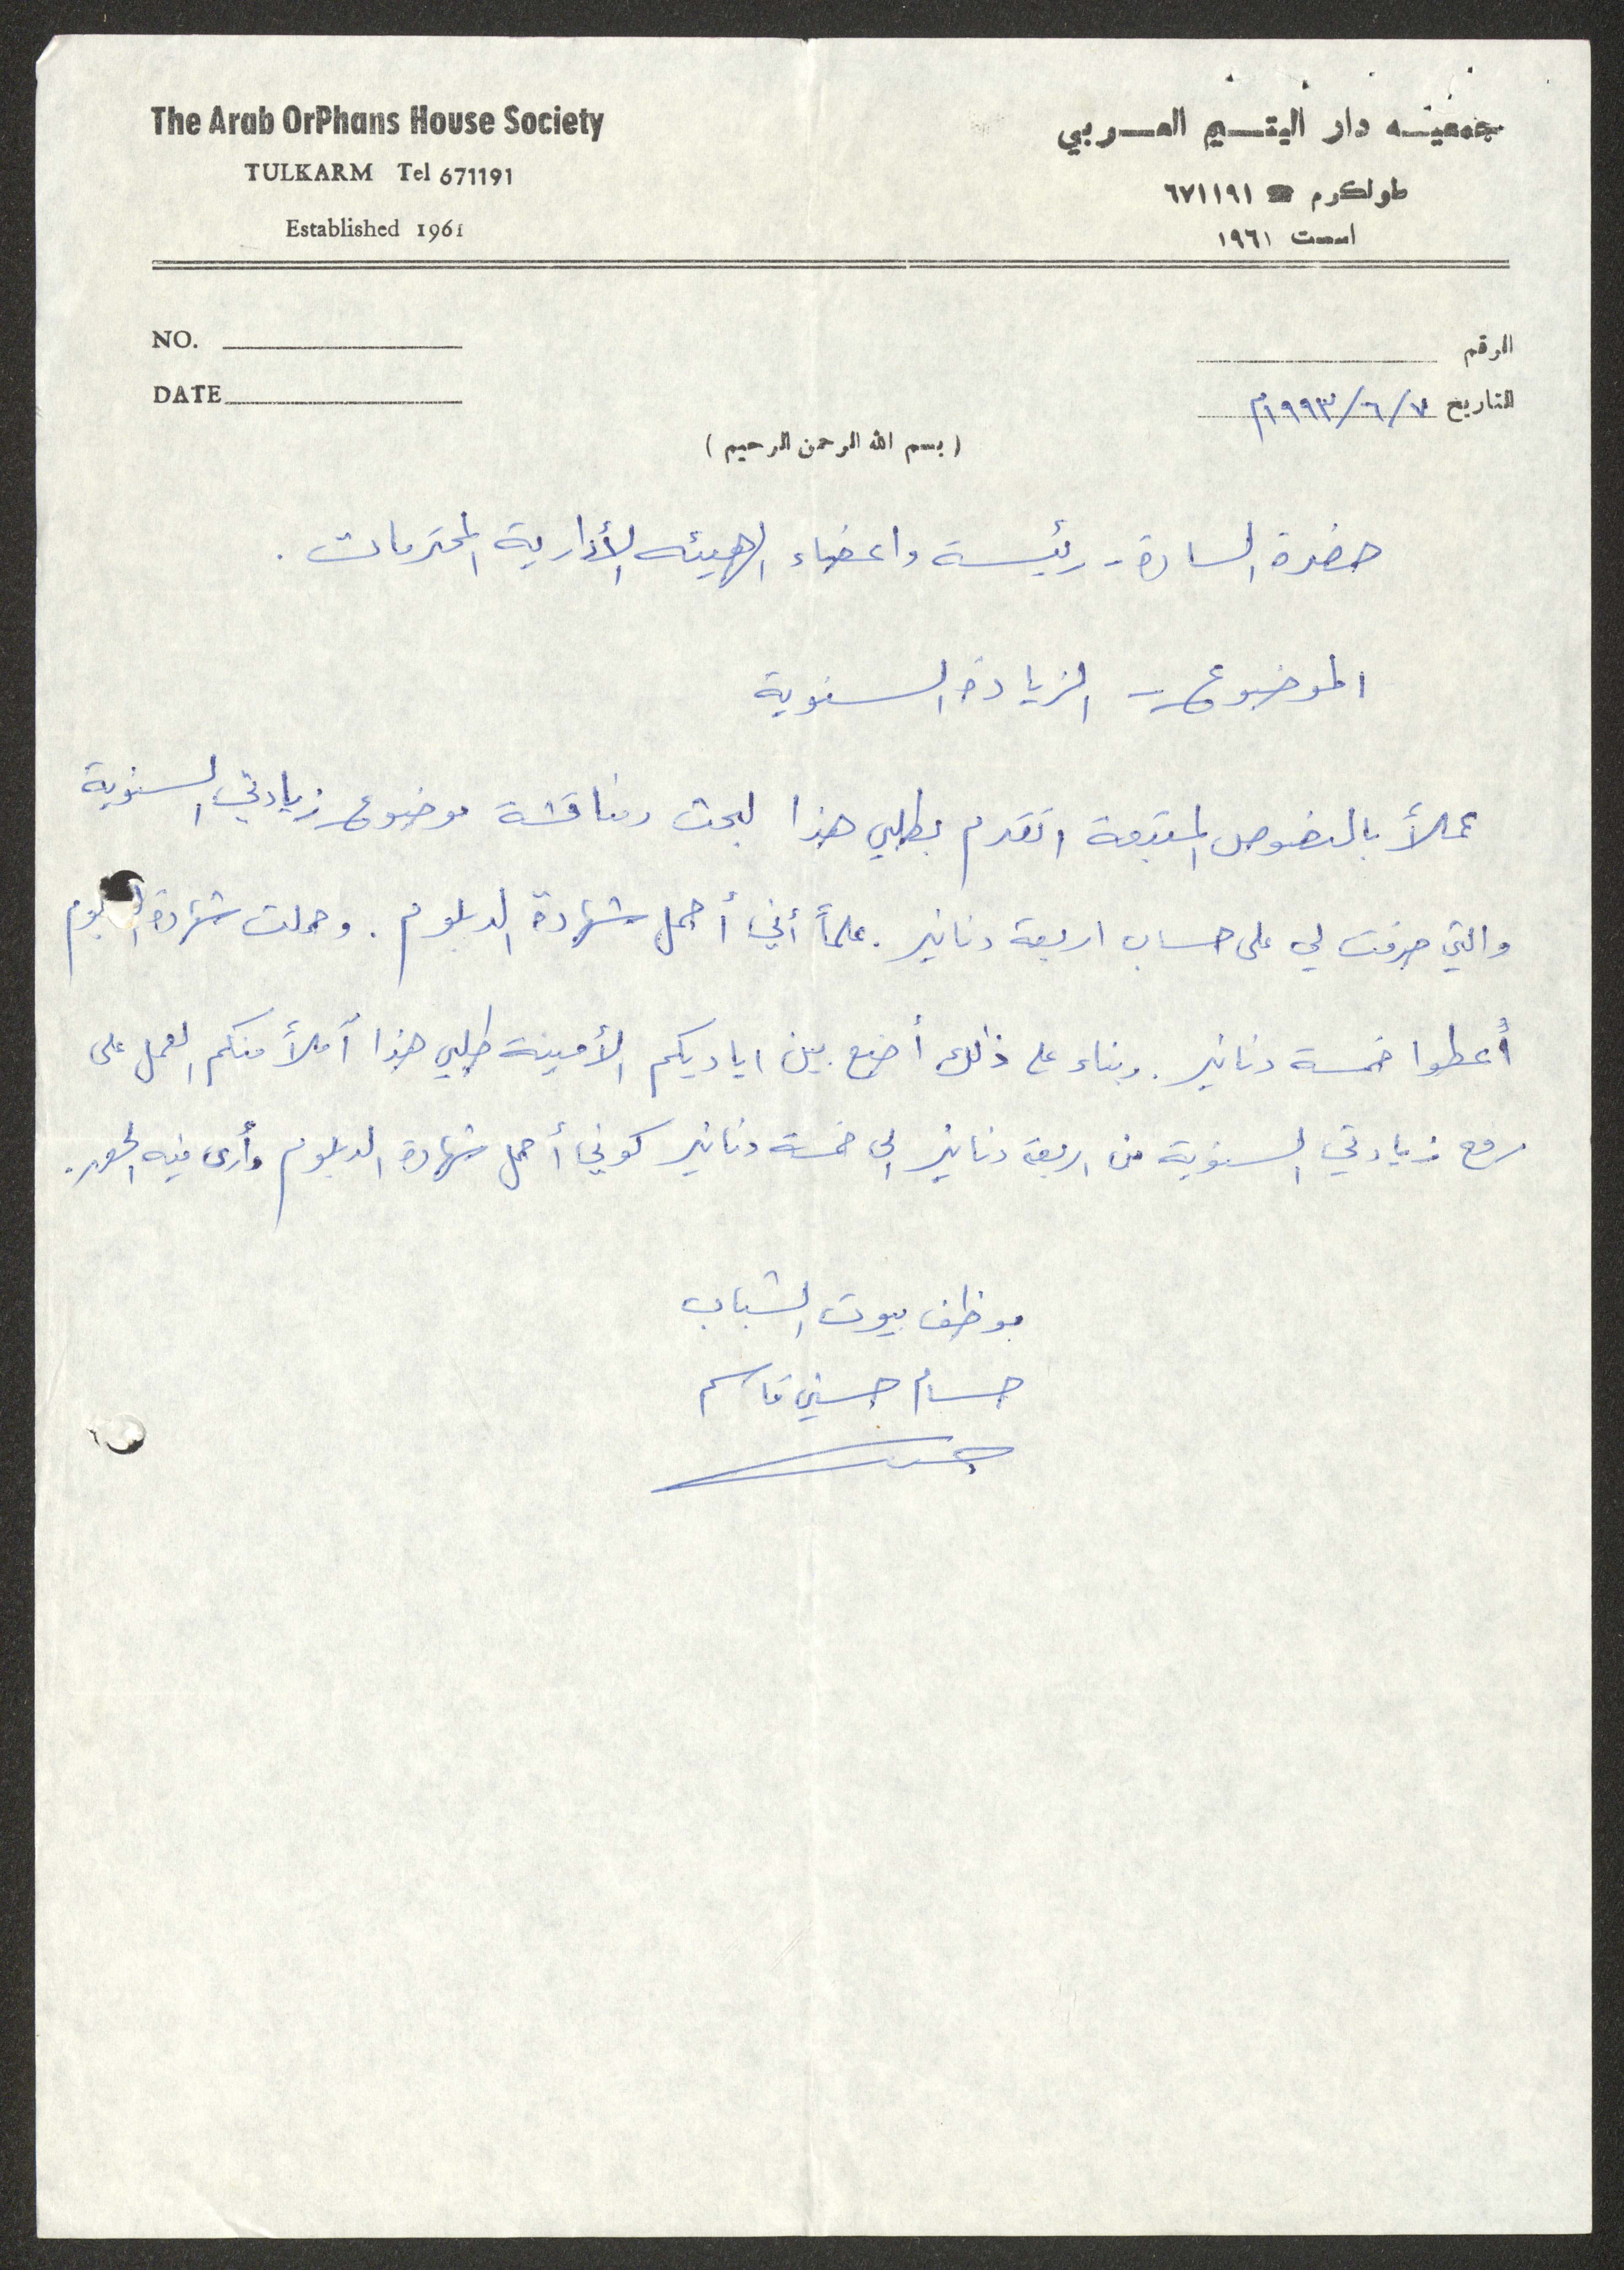 The Arab OrPhans House Society
TULKARM Tel 671191
Established 1961
جمعيـة دار اليتـيم العـربي
طولكرم ☎ ٦٧١١٩١
اسست ١٩٦١
NO.
DATE
الرقم
التاريخ ٧/٦/١٩٩٣م
( بسم الله الرحمن الرحيم )
حضرة السادة - رئيسة واعضاء الهيئه الأدارية المحترمات .
الموضوع - الزيادة السنوية
عملاً بالنصوص المتبعة اتقدم بطلبي هذا لبحث ومناقشة موضوع زيادتي السنوية
والتي صرفت لي على حساب اربعة دنانير . علماً أني أحمل شهادة الدبلوم . وحملت شهادة
أعطوا خمسة دنانير . وبناء على ذلك أضع بين اياديكم الأمينة طلبي هذا آملاً منكم العمل على
رفع زيادتي السنوية من اربعة دنانير الى خمسة دنانير كوني أحمل شهادة الدبلوم وأرى فيه
موظف بيوت الشباب
حسام حسني قاسم